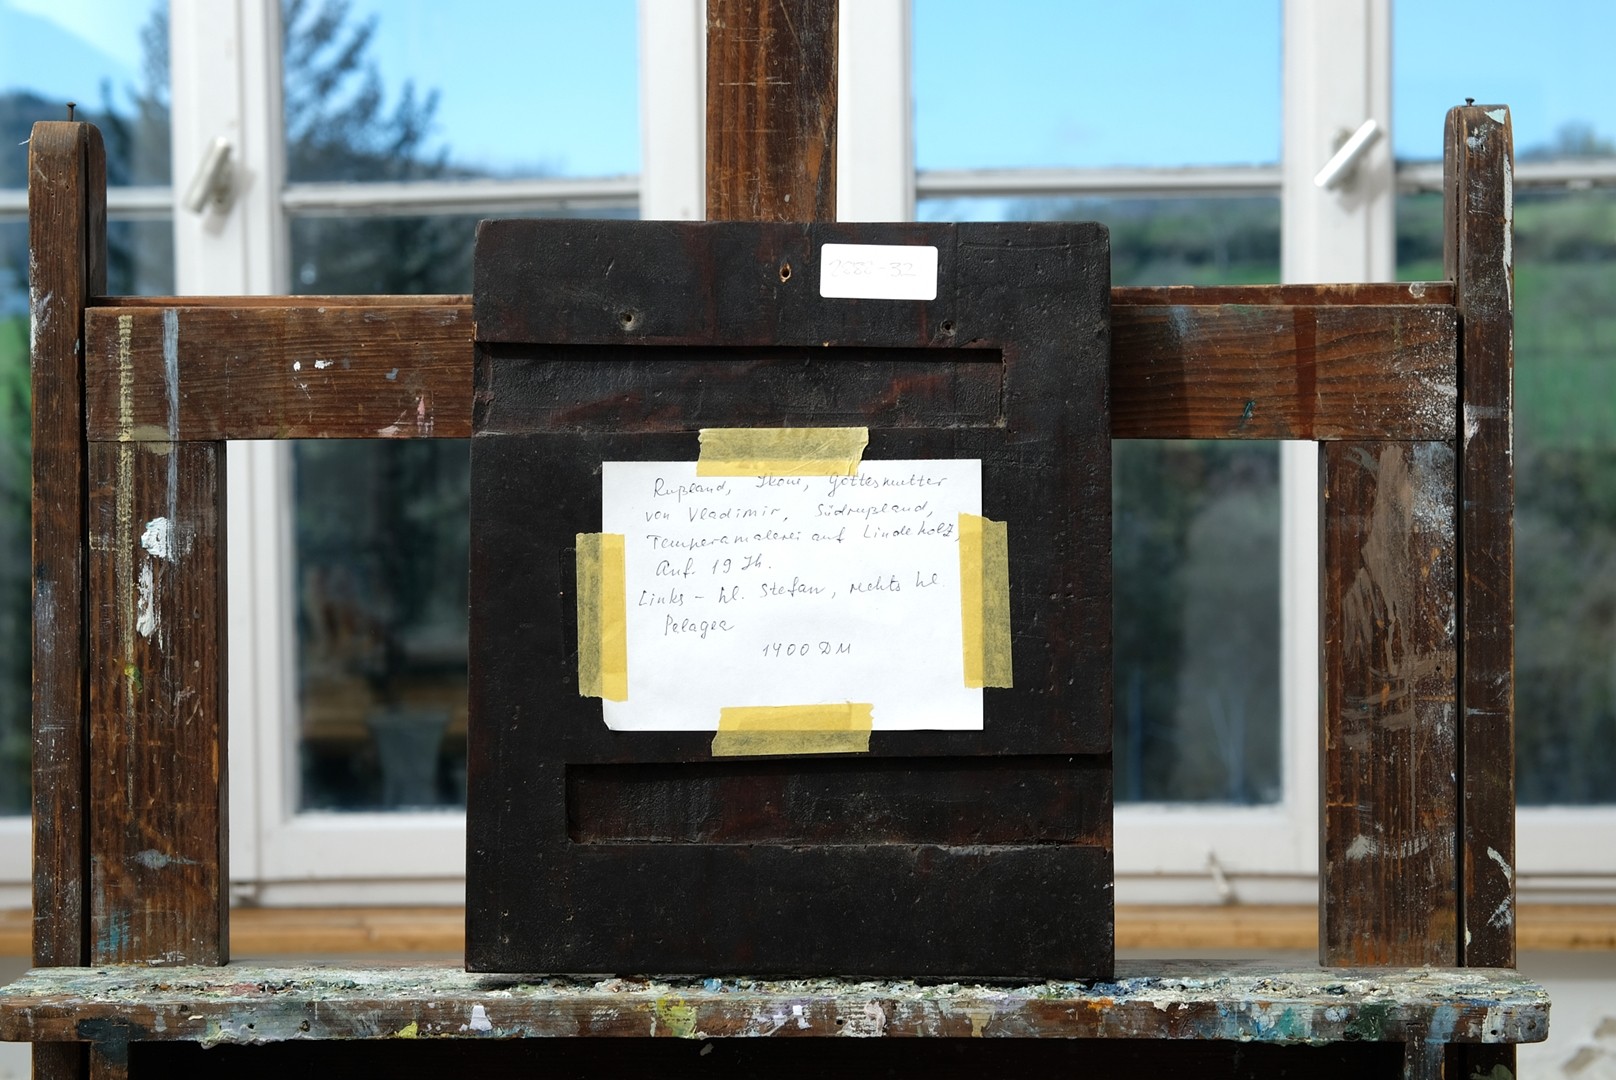 Rußland, Ikone, Gottesmutter
von Vladimir, Südrußland,
Temperamalerei auf Lindeholz,
Anf. 19 Jh.
Links - hl. Stefan, rechts hl.
Pelagea
1400 DM